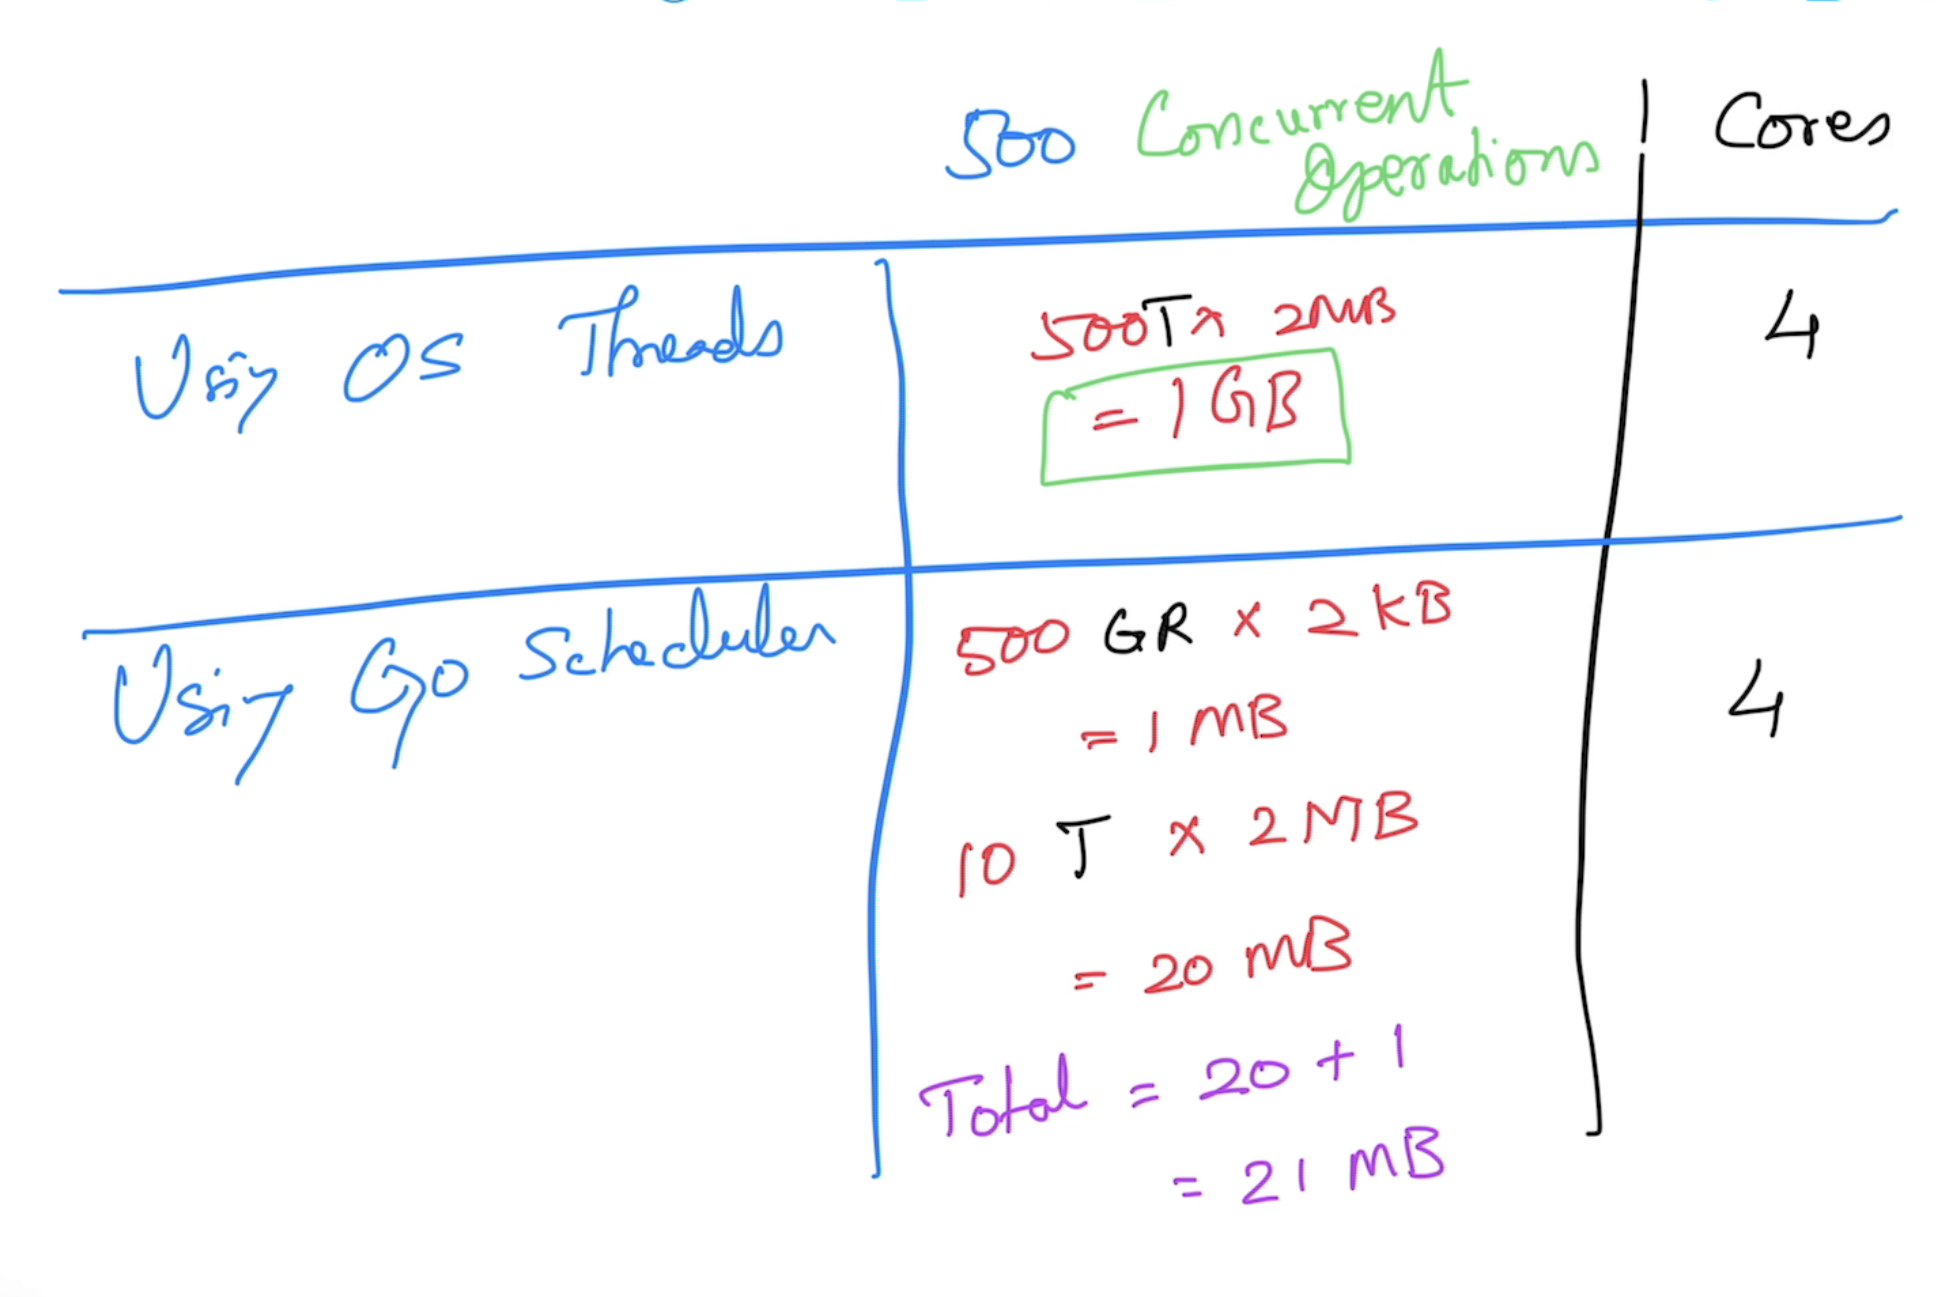 500 Concurrent Operations Cores
Using OS Threads
500T x 2MB
= 1GB
4
Using Go Scheduler
500 GR x 2 KB
= 1 MB
10 T x 2MB
= 20 MB
Total = 20 + 1
= 21 MB
4